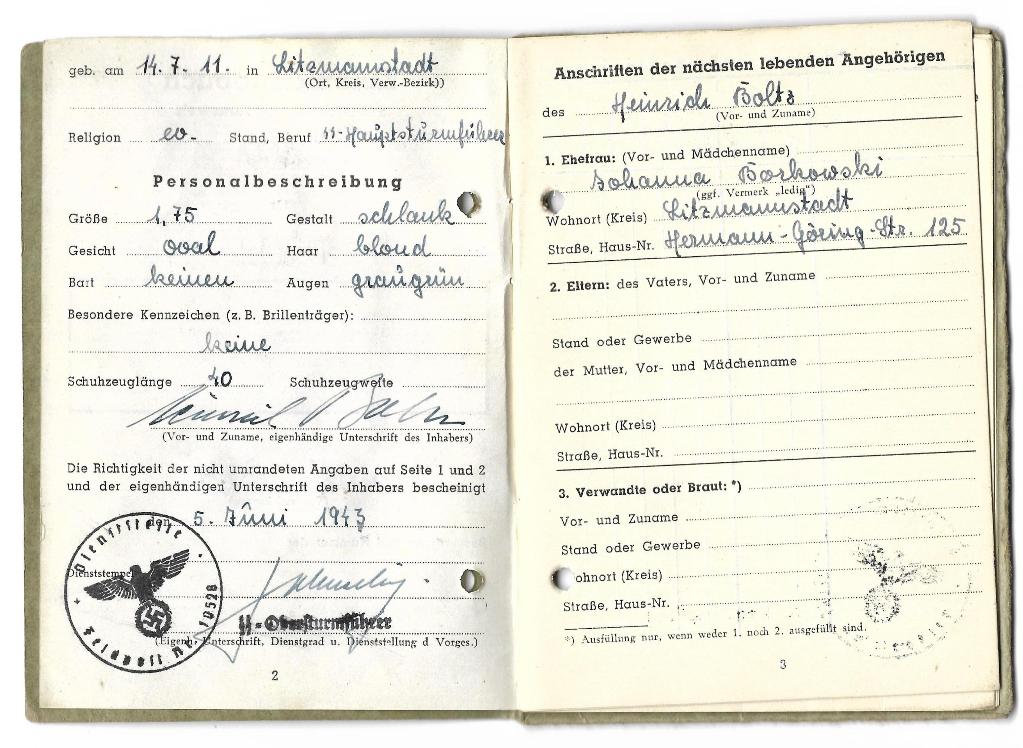 geb. am 14.7.11. in Litzmannstadt
(Ort, Kreis, Verw.-Bezirk))
Religion ev- Stand, Beruf SS-Hauptsturmführer
Personalbeschreibung
Größe 1,75 Gestalt schlank
Gesicht oval Haar blond
Bart keinen Augen graugrün
Besondere Kennzeichen (z. B. Brillenträger):
keine
Schuhzeuglänge 40 Schuhzeugweite
(Vor- und Zuname, eigenhändige Unterschrift des Inhabers)
Die Richtigkeit der nicht umrandeten Angaben auf Seite 1 und 2
und der eigenhändigen Unterschrift des Inhabers bescheinigt
den 5. Juni 1943
Dienststelle
Feldpost Nr. 10528
Dienststempel
SS-Obersturmführer
(Eigenh. Unterschrift, Dienstgrad u. Dienststellung d Vorges.)
2
Anschriften der nächsten lebenden Angehörigen
des Heinrich Boltz
(Vor- und Zuname)
1. Ehefrau: (Vor- und Mädchenname)
Johanna Borkowski
(ggf. Vermerk „ledig“)
Wohnort (Kreis) Litzmannstadt
Straße, Haus-Nr. Hermann-Göring-Str. 125
2. Eltern: des Vaters, Vor- und Zuname
Stand oder Gewerbe
der Mutter, Vor- und Mädchenname
Wohnort (Kreis)
Straße, Haus-Nr.
3. Verwandte oder Braut: *)
Vor- und Zuname
Stand oder Gewerbe
ohnort (Kreis)
Straße, Haus-Nr.
*) Ausfüllung nur, wenn weder 1. noch 2. ausgefüllt sind.
3